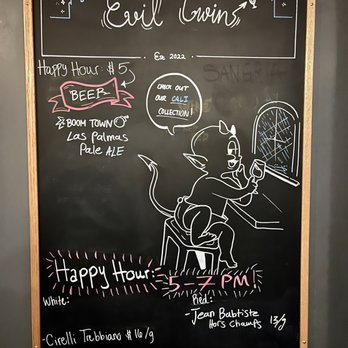 Evil Twins
Est 2022
Happy Hour: $5
BEER
BOOM TOWN
Las Palmas
Pale ALE
CHECK OUT
OUR CALI
COLLECTION!
Happy Hour:
5-7 PM.
White:
Red:
-Jean Babtiste
Hors Champs 13/g
-Cirelli Trabbiano $16/g